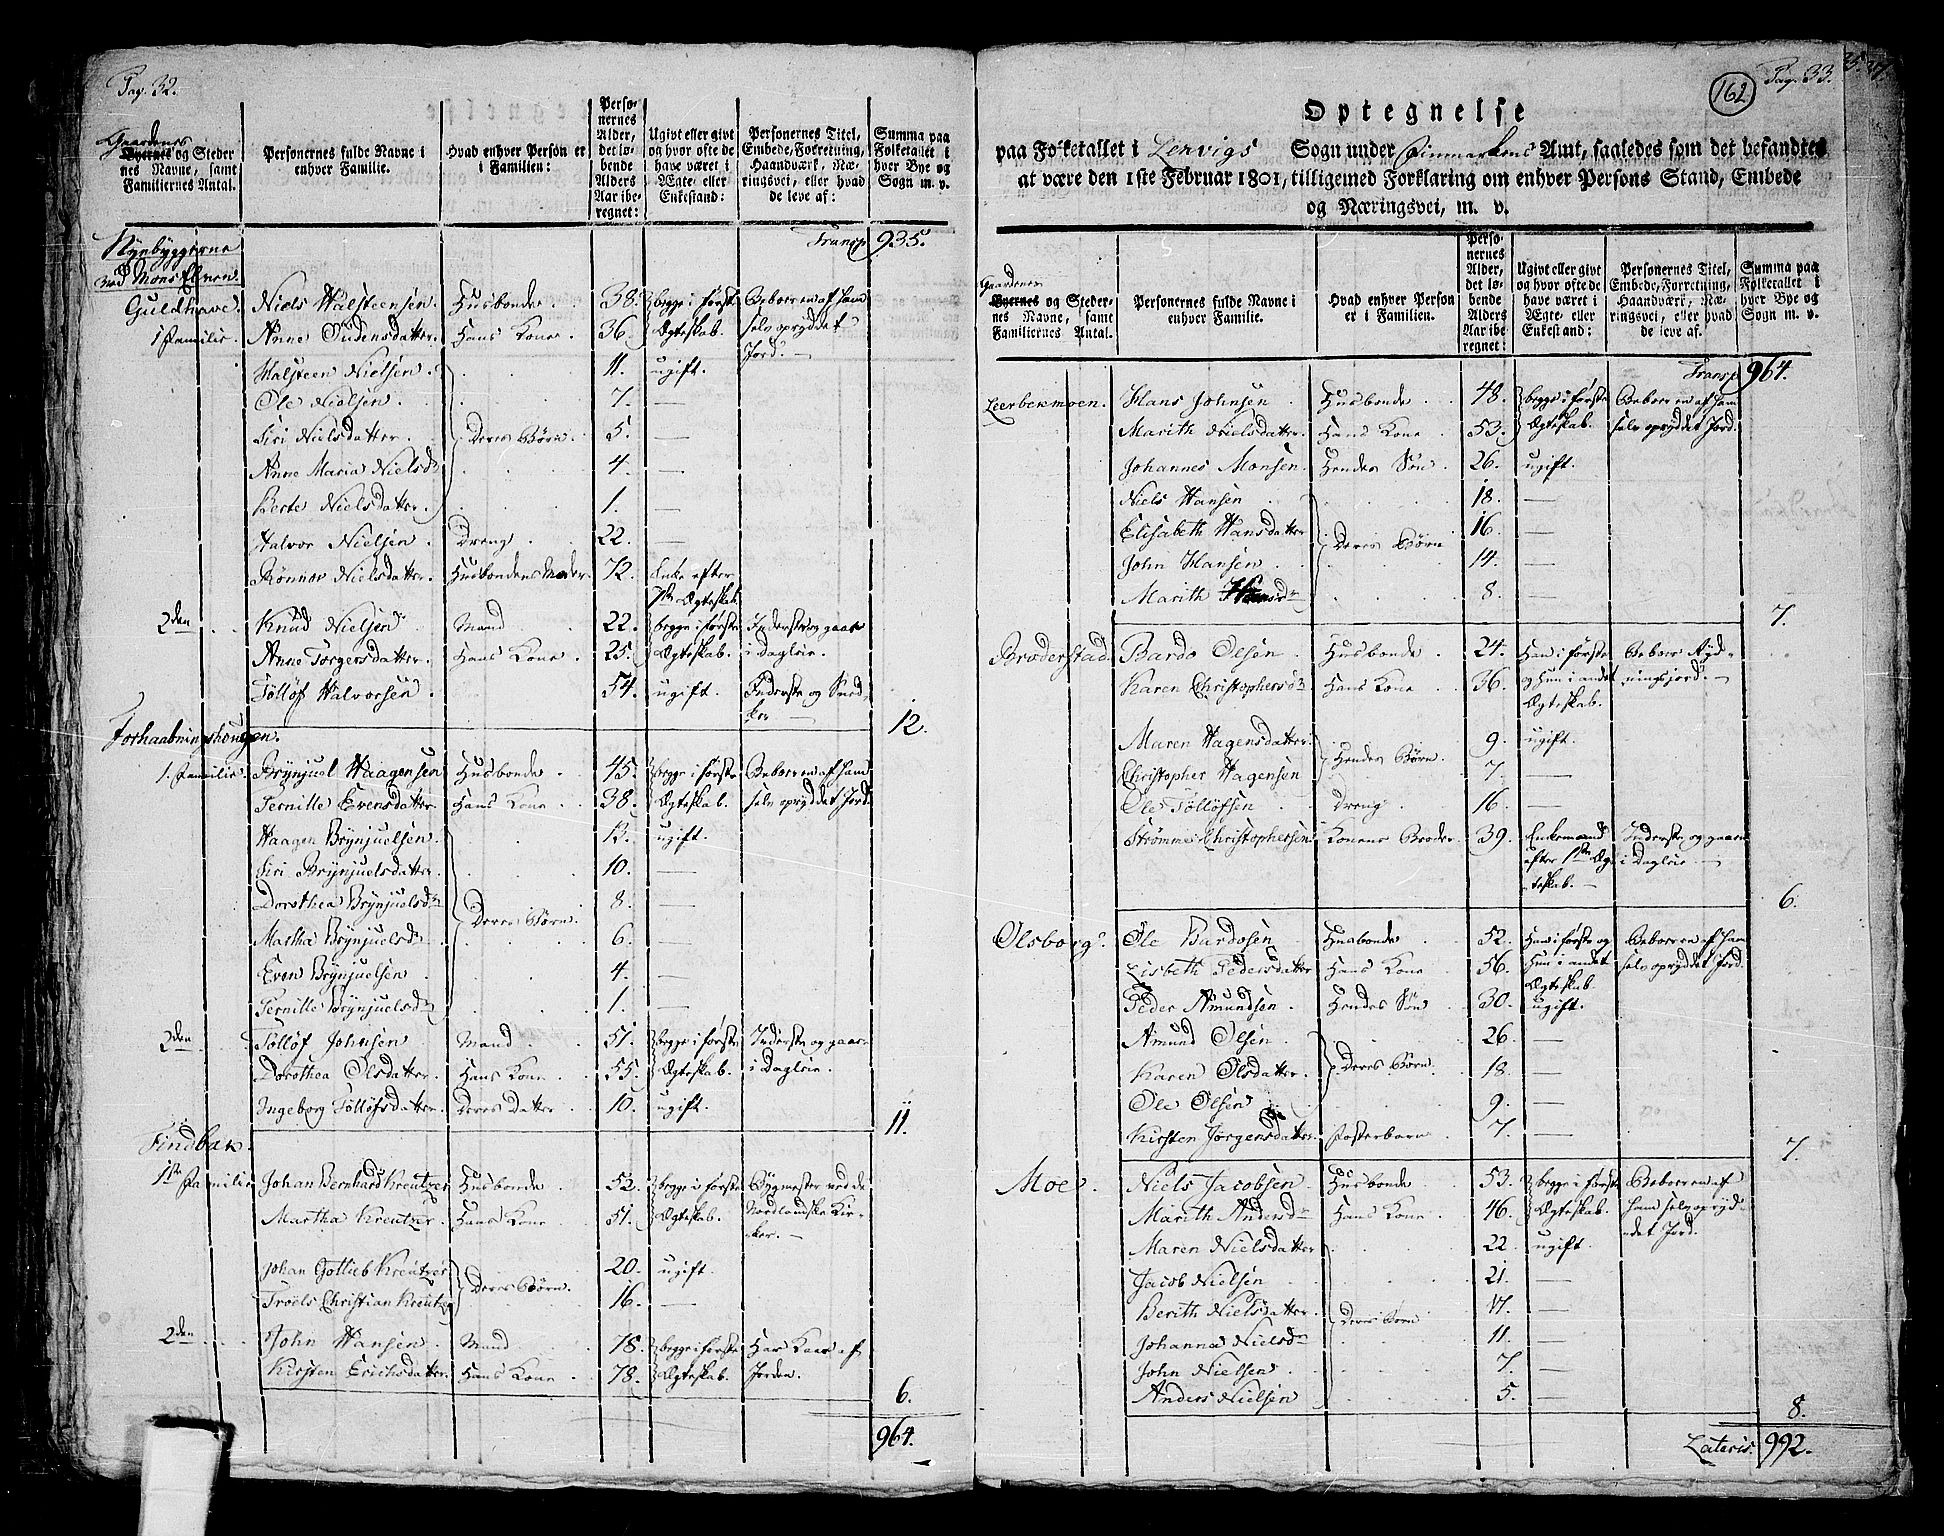 Pag. 32.
Gaardenes
Byernes og Steder
nes Navne, samt
Familiernes Antal.
Personernes fulde Navne i
enhver Familie.
Hvad enhver Person er
i Familien:
Perso-
nernes
Alder,
det lø-
bende
Alders
Aar ibe-
regnet:
Ugivt eller givt
og hvor ofte de
have været i
Ægte- eller
Enkestand:
Personernes Titel,
Embede, Forretning,
Haandværk, Næ-
ringsvei, eller hvad
de leve af:
Summa paa
Folketallet i
hver Bye og
Sogn m. v.
Nynbyggerne Transp 935.
ved Mons Elven.
Guldhave. Niels Halsteensen. Husbonde. 38. begge i første Beboer en af ham
1 Familie. Anne Endensdatter. Hans Kone. 36. Ægteskab. selv opryddet
Jord.
Halsteen Nielsen. 11. ugift.
Ole Nielsen. 7. —
Siri Nielsdatter. Deres Børn. 5. —
Anne Maria Nielsd 4. —
Berte Nielsdatter. 1. —
Halvor Nielsen. Dreng. 22. —
Rönnov Nielsdatter. Husbondens Moder. 72. Enke efter
1ste Ægteskab.
2den Knud Nielsen Mand 22. begge i første Inderste og gaar
Anne Torgersdatter. Hans Kone. 25. Ægteskab. i Dagleie.
Tölløf Halvorsen 54. ugift. Inderste og Sned-
ker —
12.
Forhaabningshougen.
1. Familie. Brynjuel Haagensen Husbonde. 45. begge i første Beboer en af ham
Pernille Evensdatter. Hans Kone. 38. Ægteskab. selv opryddet Jord.
Haagen Brynjuelsen. 13. ugift.
Siri Brynjuelsdatter. 10. —
Dorothea Brynjuelsd 8. —
Deres Børn.
Martha Brynjuelsd 6. —
Even Brynjuelsen 4. —
Pernille Brynjuelsd 1. —
2den Tölløf Johnsen Mand. 51. begge i første Inderste og gaar
Dorothea Olsdatter. Hans Kone. 55. Ægteskab. i Dagleie.
Ingeborg Tölløfsdatter. Deres Datter. 10. ugift.
11.
Findbak.
1ste Familie Johan Bernhard Kreutzer Husbonde. 52. begge i første Bygmester ved de
Martha Kreutzer. Hans Kone 51. Ægteskab. Nordlandske Kir-
ker. —
Johan Gottlieb Kreutzer. 20. ugift.
Deres Børn.
Troels Christian Kreutzer 16. —
2den John Hansen. Mand. 78. begge i første Har Kaar af
Kirsten Erichsdatter. Hans Kone. 78. Ægteskab. Jorden.
6.
964.
162 Pag. 33.
Optegnelse
paa Folketallet i Lenvigs Sogn under Finmarkens Amt, saaledes som det befandtes
at være den 1ste Februar 1801, tilligemed Forklaring om enhver Persons Stand, Embede
og Næringsvei, m. v.
Gaardenes
Byernes og Steder-
nes Navne, samt
Familiernes Antal.
Personernes fulde Navne i
enhver Familie.
Hvad enhver Person
er i Familien.
Perso-
nernes
Alder,
det lø-
bende
Alders
Aar ibe-
regnet:
Ugivt eller givt
og hvor ofte de
have været i
Ægte- eller
Enkestand:
Personernes Titel,
Embede, Forretning,
Haandværk, Næ-
ringsvei, eller hvad
de leve af.
Summa paa
Folketallet i
hver Bye og
Sogn m. v.
Transp 964.
Leerbekmoen. Hans Johnsen Husbonde 48. begge i første Beboer en af ham
Marith Nielsdatter. Hans Kone 53. Ægteskab. selv opryddet Jord.
Johannes Monsen. Hendes Søn 26. ugift.
Niels Hansen 18. —
Elisabeth Hansdatter 16. —
Deres Børn
John Hansen 14. —
Marith Hansd 8. —
7.
Broderstad. Bardo Olsen Husbonde 24. Han i første Beboer Ryd-
Karen Christophersd Hans Kone 36. og hun i andet ningsjord.
Ægteskab.
Maren Hagensdatter. 9. ugift.
Hendes Børn.
Christopher Hagensen 7. —
Ole Tölløfsen Dreng. 16. —
Strømme Christophersen. Konens Broder. 39. Enkemand Inderste og gaar
efter 1ste Æg- i Dagleie —
teskab. —
6.
Olsborg. Ole Bardosen Husbonde 52. Han i første og Beboer en af ham
Lisbeth Pedersdatter Hans Kone 56. Hun i andet selv opryddet Jord.
Ægteskab.
Peder Amundsen. Hendes Søn 30. ugift.
Amund Olsen 26. —
Karen Olsdatter. Deres Børn. 18. —
Ole Olsen 9. —
Kirsten Jørgensdatter. Fosterbarn. 7. —
7.
Moe. Niels Jacobsen Husbonde 53. begge i første Beboer en af
Marith Andersd Hans Kone 46. Ægteskab. ham selv opryd-
Maren Nielsdatter 22. ugift. det Jord.
Jacob Nielsen 21. —
Berith Nielsdatter. 17. —
Deres Børn
Johanna Nielsd 11. —
John Nielsen 7. —
Anders Nielsen 5. —
8.
Lateris. 992.